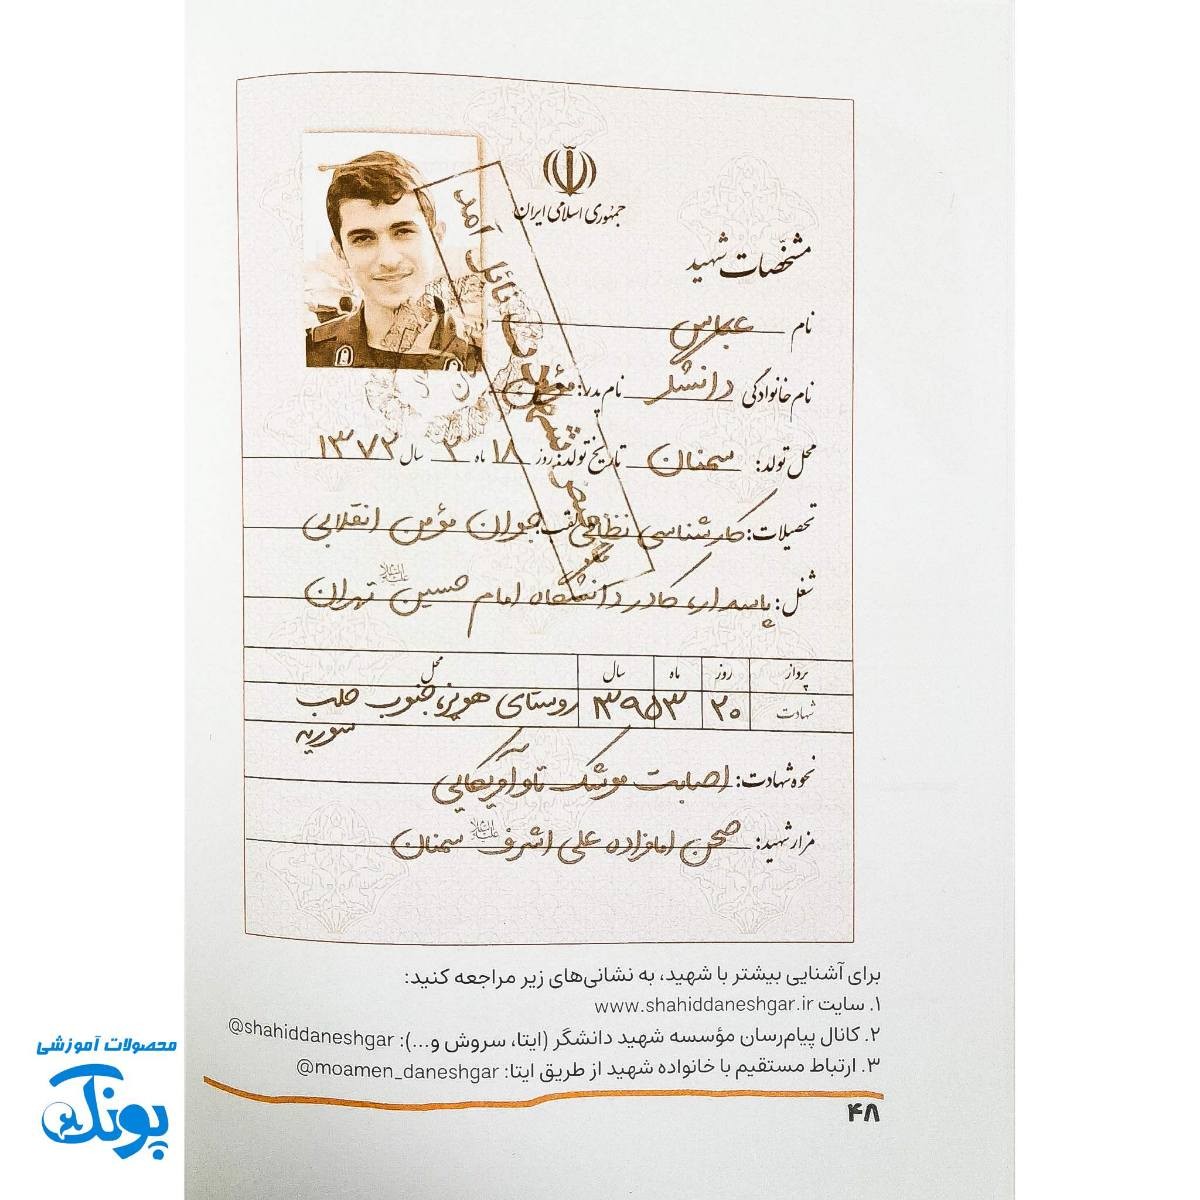 جمهوری اسلامی ایران
مشخصات شهید
نام عباس
نام خانوادگی دانشگر نام پدر: مؤمن
محل تولد: سمنان تاریخ تولد: روز ۱۸ ماه ۲ سال ۱۳۷۲
تحصیلات: کارشناسی نظامی لقب: جوان مؤمن انقلابی
شغل: پاسدار، کادر دانشگاه امام حسین علیه‌السلام تهران
پرواز روز ماه سال محل
شهادت ۲۰ ۳ ۱۳۹۵ روستای هوبر، جنوب حلب
سوریه
نحوه شهادت: اصابت موشک تاو آمریکایی
مزار شهید: صحن امامزاده علی اشرف علیه‌السلام سمنان
نائل آمد
برای آشنایی بیشتر با شهید، به نشانی‌های زیر مراجعه کنید:
۱. سایت www.shahiddaneshgar.ir
۲. کانال پیام‌رسان مؤسسه شهید دانشگر (ایتا، سروش و...): @shahiddaneshgar
۳. ارتباط مستقیم با خانواده شهید از طریق ایتا: @moamen_daneshgar
۴۸
محصولات آموزشی
پونک